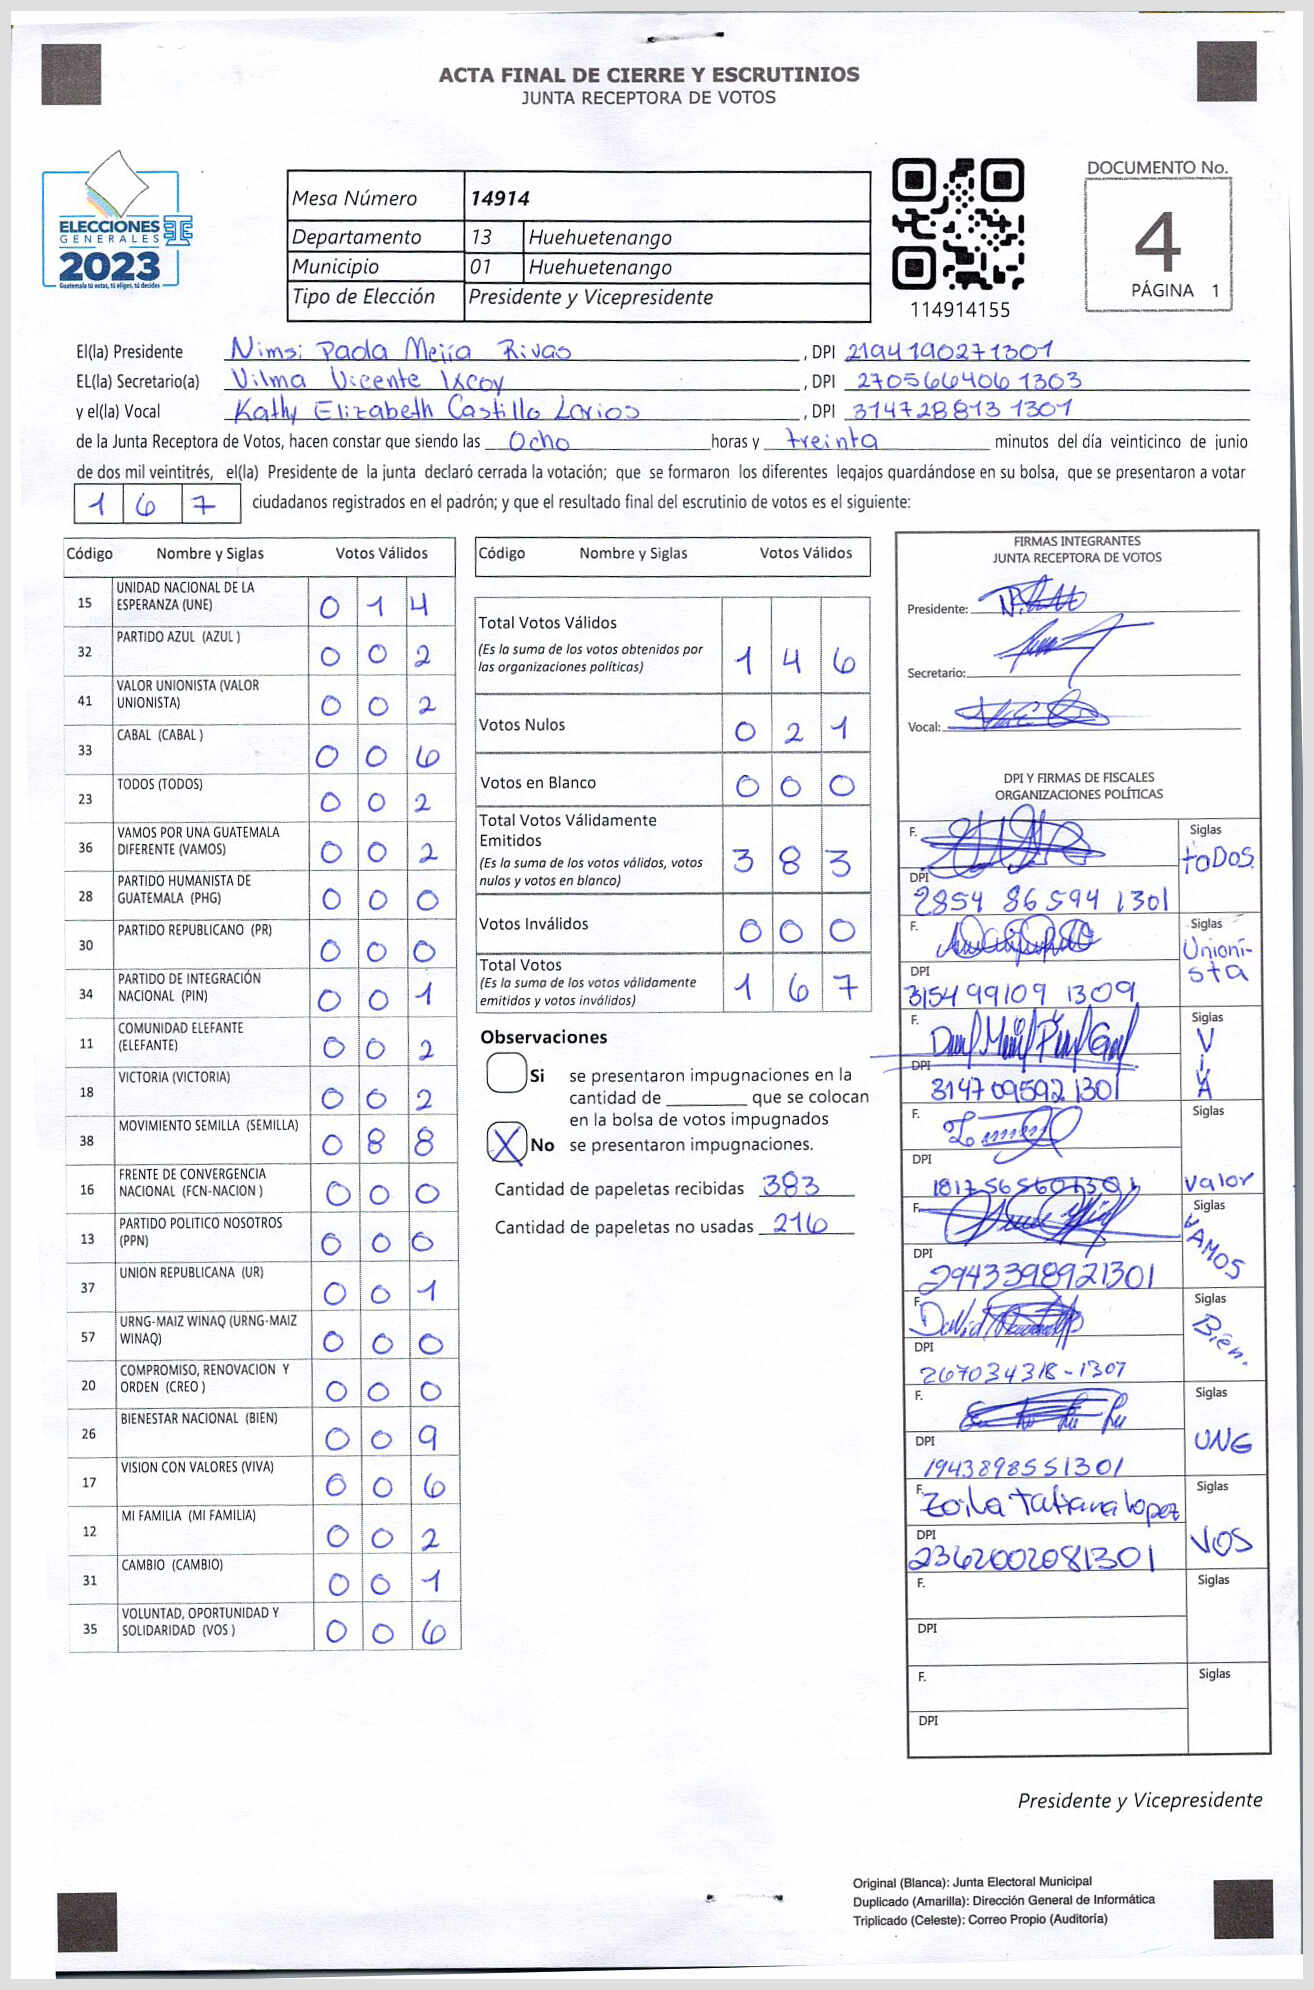 ACTA FINAL DE CIERRE Y ESCRUTINIOS
JUNTA RECEPTORA DE VOTOS
ELECCIONES
GENERALES
2023
Guatemala tú votas, tú eliges, tú decides
Mesa Número 14914
Departamento 13 Huehuetenango
Municipio 01 Huehuetenango
Tipo de Elección Presidente y Vicepresidente
114914155
DOCUMENTO No.
4
PÁGINA 1
El(la) Presidente Nimsi Paola Mejía Rivas , DPI 2194190271301
EL(la) Secretario(a) Vilma Vicente Ixcoy , DPI 2705664061303
y el(la) Vocal Kathy Elizabeth Castillo Larios , DPI 3147288131301
de la Junta Receptora de Votos, hacen constar que siendo las Ocho horas y treinta minutos del día veinticinco de junio
de dos mil veintitrés, el(la) Presidente de la junta declaró cerrada la votación; que se formaron los diferentes legajos quardándose en su bolsa, que se presentaron a votar
1 6 7 ciudadanos registrados en el padrón; y que el resultado final del escrutinio de votos es el siguiente:
Código Nombre y Siglas Votos Válidos
15 UNIDAD NACIONAL DE LA ESPERANZA (UNE) 0 1 4
32 PARTIDO AZUL (AZUL ) 0 0 2
41 VALOR UNIONISTA (VALOR UNIONISTA) 0 0 2
33 CABAL (CABAL ) 0 0 6
23 TODOS (TODOS) 0 0 2
36 VAMOS POR UNA GUATEMALA DIFERENTE (VAMOS) 0 0 2
28 PARTIDO HUMANISTA DE GUATEMALA (PHG) 0 0 0
30 PARTIDO REPUBLICANO (PR) 0 0 0
34 PARTIDO DE INTEGRACIÓN NACIONAL (PIN) 0 0 1
11 COMUNIDAD ELEFANTE (ELEFANTE) 0 0 2
18 VICTORIA (VICTORIA) 0 0 2
38 MOVIMIENTO SEMILLA (SEMILLA) 0 8 8
16 FRENTE DE CONVERGENCIA NACIONAL (FCN-NACION ) 0 0 0
13 PARTIDO POLITICO NOSOTROS (PPN) 0 0 0
37 UNION REPUBLICANA (UR) 0 0 1
57 URNG-MAIZ WINAQ (URNG-MAIZ WINAQ) 0 0 0
20 COMPROMISO, RENOVACION Y ORDEN (CREO ) 0 0 0
26 BIENESTAR NACIONAL (BIEN) 0 0 9
17 VISION CON VALORES (VIVA) 0 0 6
12 MI FAMILIA (MI FAMILIA) 0 0 2
31 CAMBIO (CAMBIO) 0 0 1
35 VOLUNTAD, OPORTUNIDAD Y SOLIDARIDAD (VOS ) 0 0 6
Código Nombre y Siglas Votos Válidos
Total Votos Válidos 1 4 6
(Es la suma de los votos obtenidos por
las organizaciones políticas)
Votos Nulos 0 2 1
Votos en Blanco 0 0 0
Total Votos Válidamente
Emitidos 3 8 3
(Es la suma de los votos válidos, votos
nulos y votos en blanco)
Votos Inválidos 0 0 0
Total Votos 1 6 7
(Es la suma de los votos válidamente
emitidos y votos inválidos)
Observaciones
Si se presentaron impugnaciones en la
cantidad de ________ que se colocan
en la bolsa de votos impugnados
X No se presentaron impugnaciones.
Cantidad de papeletas recibidas 383
Cantidad de papeletas no usadas 216
FIRMAS INTEGRANTES
JUNTA RECEPTORA DE VOTOS
Presidente:
Secretario:
Vocal:
DPI Y FIRMAS DE FISCALES
ORGANIZACIONES POLÍTICAS
F. Siglas
TODOS
DPI
2854 86594 1301
F. Siglas
Unioni-
sta
DPI
3154 99109 1309
F. Siglas
VIVA
DPI
3147095921301
F. Siglas
DPI
1817565601301 Valor
F. Siglas
VAMOS
DPI
2943398921301
F. Siglas
Bien.
DPI
267034318-1307
F. Siglas
UNE
DPI
1943898551301
F. Siglas
Zoila Tatiana lopez
VOS
DPI
2362002081301
F. Siglas
DPI
F. Siglas
DPI
Presidente y Vicepresidente
Original (Blanca): Junta Electoral Municipal
Duplicado (Amarilla): Dirección General de Informática
Triplicado (Celeste): Correo Propio (Auditoría)